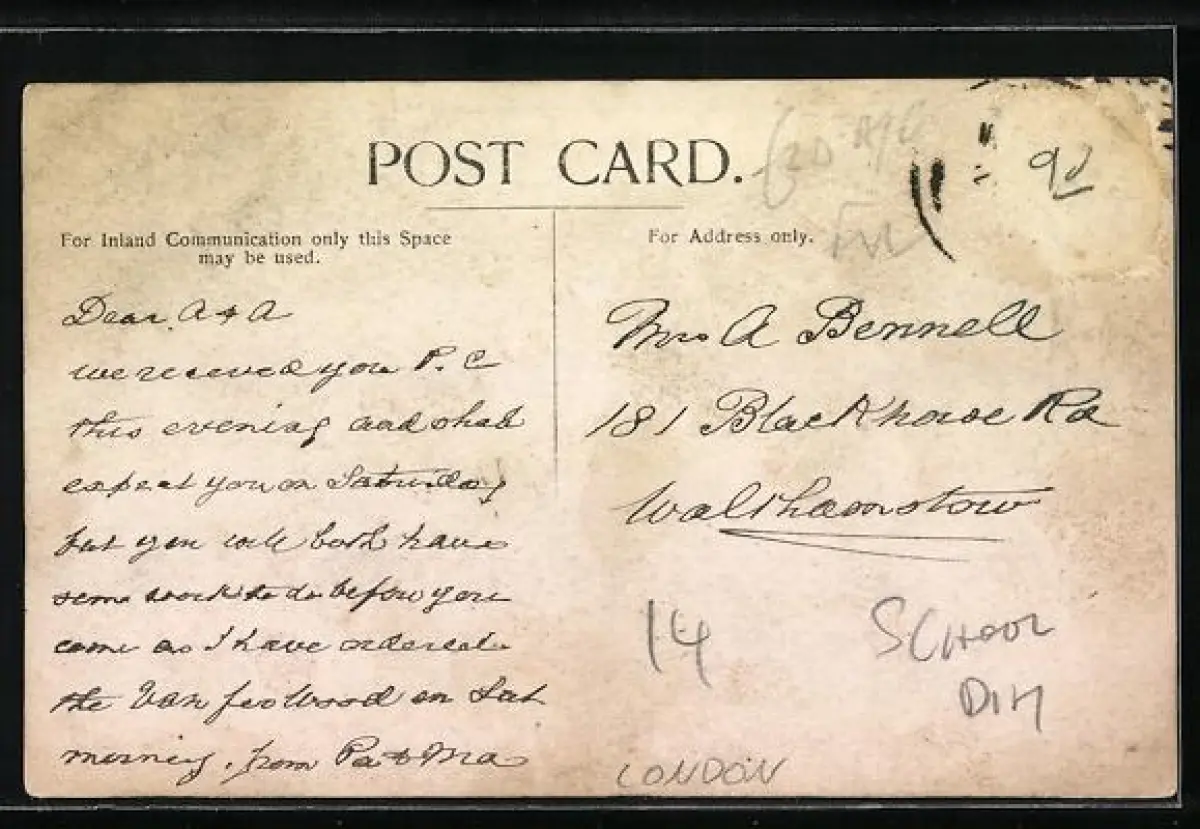 POST CARD.
For Inland Communication only this Space
may be used.
For Address only.
Dear A & A
we received you P. C
this evening and shall
expect you on Saturday
but you will both have
some work to do before you
come as I have ordered
the Van for Wood on Sat
morning. from Pa & Ma
Mrs A Bennell
181 Blackhorse Rd
Walthamstow
14
SCHOOL
LONDON